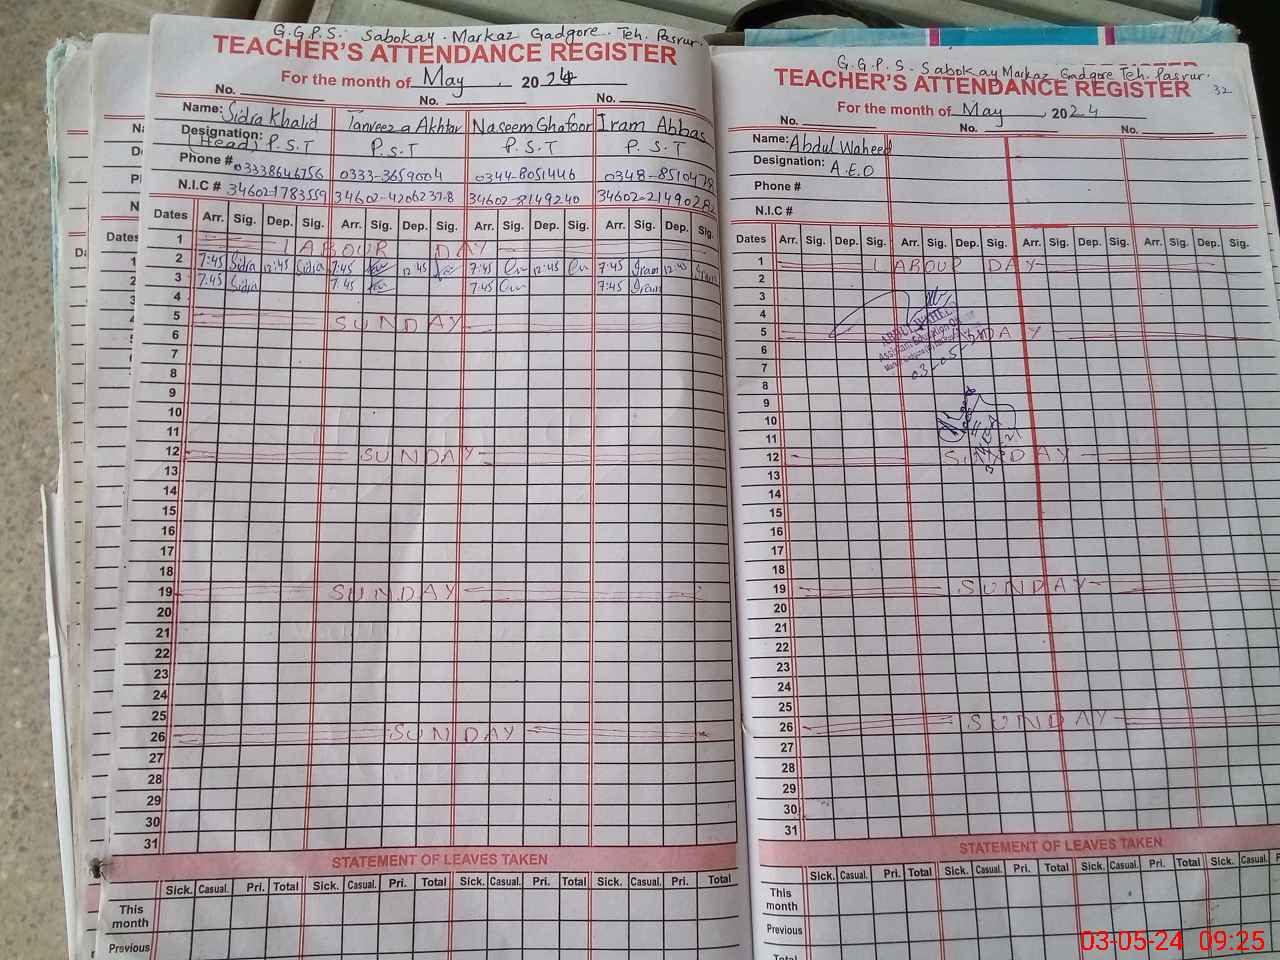 G.G.P.S. Sabokay Markaz Gadgore Teh. Pasrur.
TEACHER'S ATTENDANCE REGISTER
For the month of May 2024
No. No. No.
Name: Sidra Khalid Tanveer a Akhtar Naseem Ghafoor Iram Abbas
Designation: (Head) P.S.T P.S.T P.S.T P.S.T
Phone # 03338646756 0333-3659004 0344-8051446 0348-85104
N.I.C # 34602-1783559 34602-4206237-8 34602-8149240 34602-2149028
Dates Arr. Sig. Dep. Sig. Arr. Sig. Dep. Sig. Arr. Sig. Dep. Sig. Arr. Sig. Dep. Sig.
1 LABOUR DAY
2 7:45 Sidra 12:45 Sidra 7:45 12:45 7:45 12:45 7:45 Iram 12:45 Iram
3 7:45 Sidra 7:45 7:45 7:45 Iram
4
5 SUNDAY
6
7
8
9
10
11
12 SUNDAY
13
14
15
16
17
18
19 SUNDAY
20
21
22
23
24
25
26 SUNDAY
27
28
29
30
31
STATEMENT OF LEAVES TAKEN
Sick. Casual. Pri. Total Sick. Casual. Pri. Total Sick. Casual. Pri. Total Sick. Casual. Pri. Total
This month
Previous
G.G.P.S. Sabokay Markaz Gadgore Teh. Pasrur.
TEACHER'S ATTENDANCE REGISTER 32
For the month of May, 2024
No. No. No.
Name: Abdul Waheed
Designation: A.E.O
Phone #
N.I.C #
Dates Arr. Sig. Dep. Sig. Arr. Sig. Dep. Sig. Arr. Sig. Dep. Sig. Arr. Sig. Dep. Sig.
1 LABOUR DAY
2
3
4
5 DAY
6
7
8
9
10
11
12 SUNDAY
13
14
15
16
17
18
19 SUNDAY
20
21
22
23
24
25
26 SUNDAY
27
28
29
30
31
Assistant Education
03-05-
STATEMENT OF LEAVES TAKEN
Sick. Casual. Pri. Total Sick. Casual. Pri. Total Sick. Casual. Pri. Total Sick. Casual.
This month
Previous
Total
03-05-24 09:25